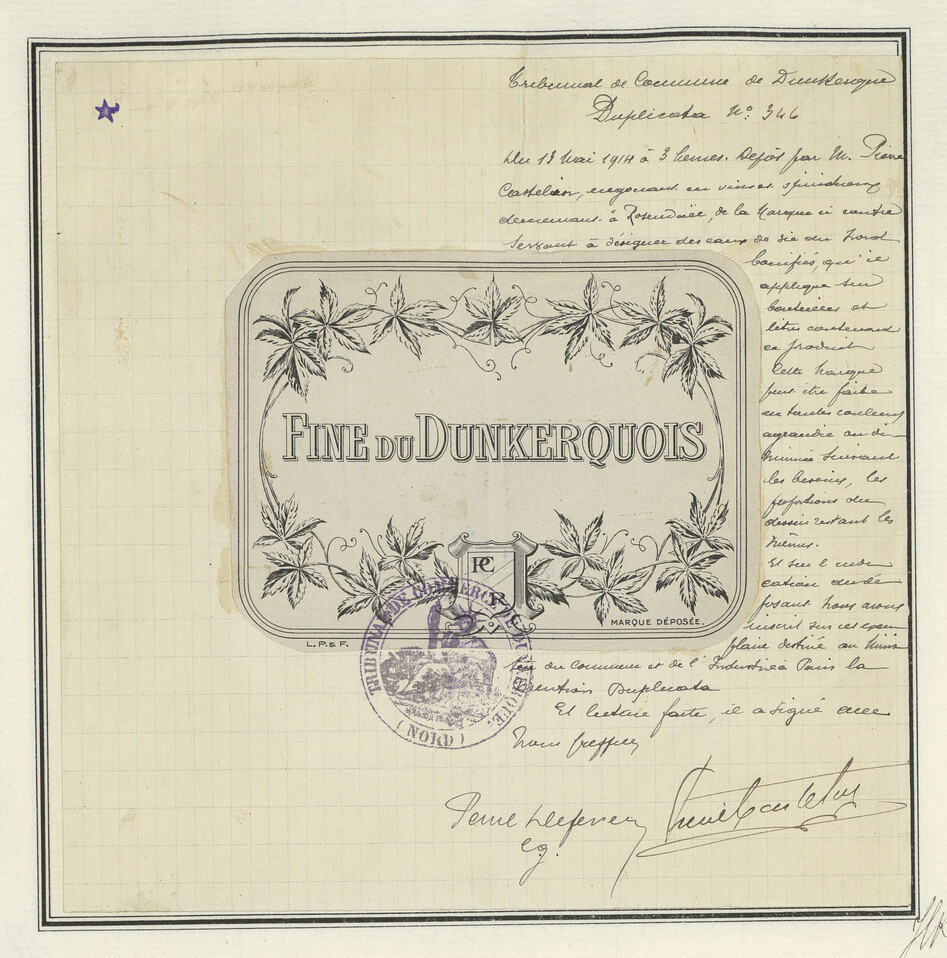 Tribunal de Commerce de Dunkerque
Duplicata N°: 346
Du 13 Mai 1914 à 3 heures. Dépôt par M. Pierre
négociant en vins et spiritueux
demeurant à Rosendaël, de la Marque ci contre
servant à désigner des eaux de vie du Nord
bonifiés, qu'il
applique sur
bouteilles et
litres contenant
ce produit
Cette Marque
peut être faite
en toutes couleurs
agrandie ou di-
minuée suivant
les besoins, les
proportions du
dessin restant les
mêmes.
Et sur l'indi
cation du dé
posant nous avons
inscrit sur cet exem
plaire destiné au Minis
tère du Commerce et de l'Industrie à Paris la
mention Duplicata
Et lecture faite, il a signé avec
nous greffier
FINE DU DUNKERQUOIS
PC
MARQUE DÉPOSÉE.
L. P. & F.
TRIBUNAL DE COMMERCE DE DUNKERQUE
(NORD)